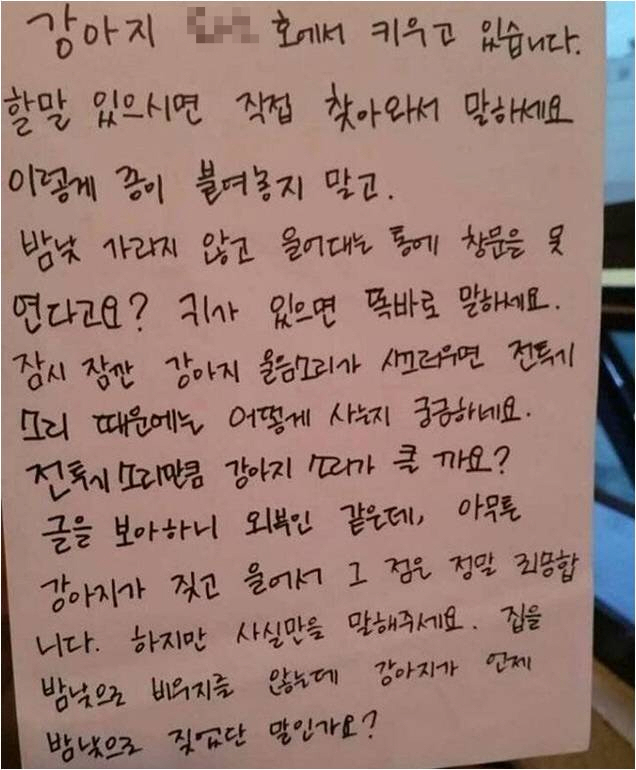 강아지 호에서 키우고 있습니다.
할말 있으시면 직접 찾아와서 말하세요
이렇게 종이 붙여놓지 말고.
밤낮 가리지 않고 울어대는 통에 창문을 못
연다고요? 귀가 있으면 똑바로 말하세요.
잠시 잠깐 강아지 울음소리가 시끄러우면 전투기
소리 때문에는 어떻게 사는지 궁금하네요.
전투기 소리만큼 강아지 소리가 클 까요?
글을 보아하니 외부인 같은데, 아무튼
강아지가 짖고 울어서 그 점은 정말 죄송합
니다. 하지만 사실만을 말해주세요. 집을
밤낮으로 비우지를 않는데 강아지가 언제
밤낮으로 짖었단 말인가요?